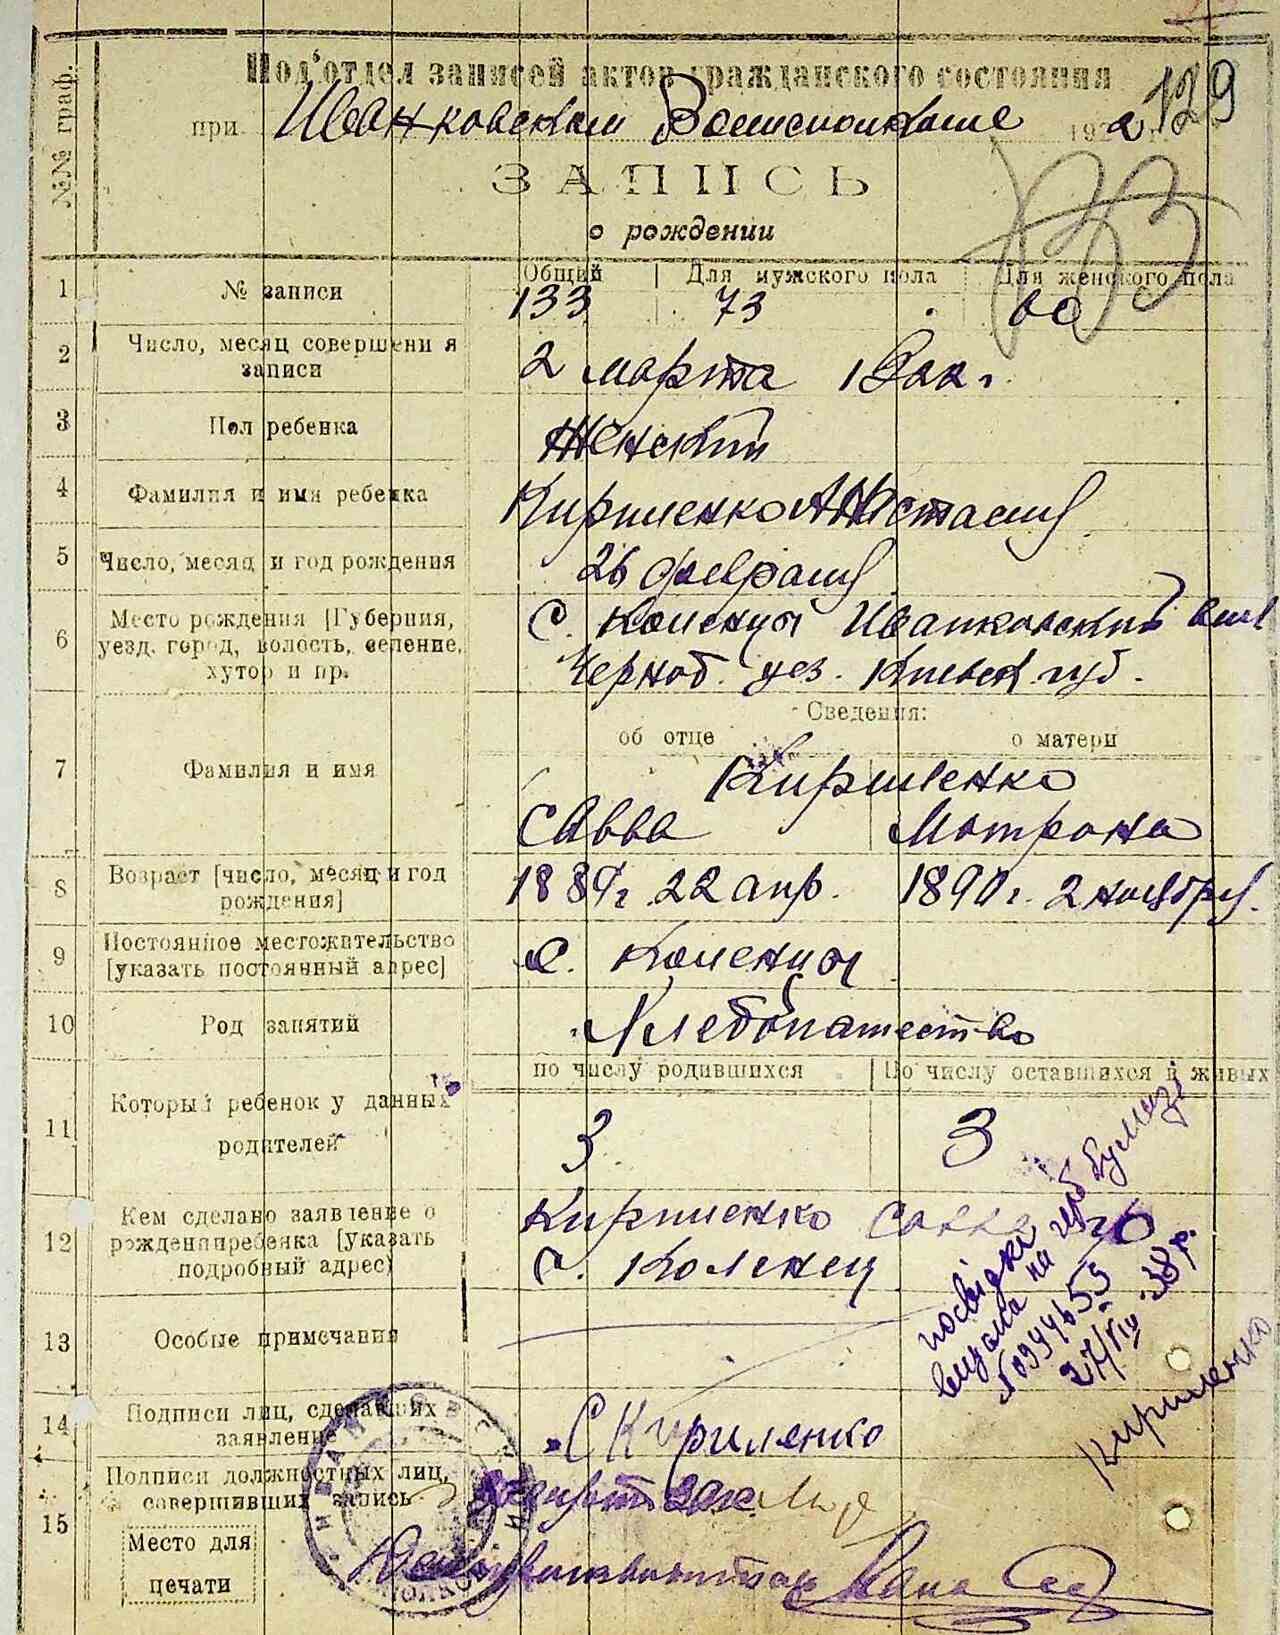 129
№№ граф.
Под'отдел записей актов гражданского состояния
при Иванковском Волисполкоме 1922 г.
ЗАПИСЬ
о рождении
133
1 № записи Общий Для мужского пола Для женского пола
133 73 60
2 Число, месяц совершения записи 2 марта 1922 г.
3 Пол ребенка Женский
4 Фамилия и имя ребенка Кириленко Анастасия
5 Число, месяц и год рождения 26 февраля
6 Место рождения [Губерния, уезд, город, волость, селение, хутор и пр.
с. Коленцы Иванковский вол
Черноб. уез. Киевск. губ.
Сведения:
об отце о матери
7 Фамилия и имя Кириленко
Савва Мотрона
8 Возраст [число, месяц и год рождения] 1889 г. 22 апр. 1890 г. 2 ноября.
9 Постоянное местожительство [указать постоянный адрес] с. Коленцы
10 Род занятий Хлебопашество
по числу родившихся По числу оставшихся в живых
11 Который ребенок у данных родителей 3 3
12 Кем сделано заявление о рождении ребенка [указать подробный адрес)
Кириленко Савва
с. Коленцы
13 Особые примечания
посвідка
видана на герб бумазі
№ 0944655
27/IV 38 р.
Кириленко
14 Подписи лиц, сделавших заявление С Кириленко
15 Подписи должностных лиц, совершивших запись
Место для печати
Делопроизводитель